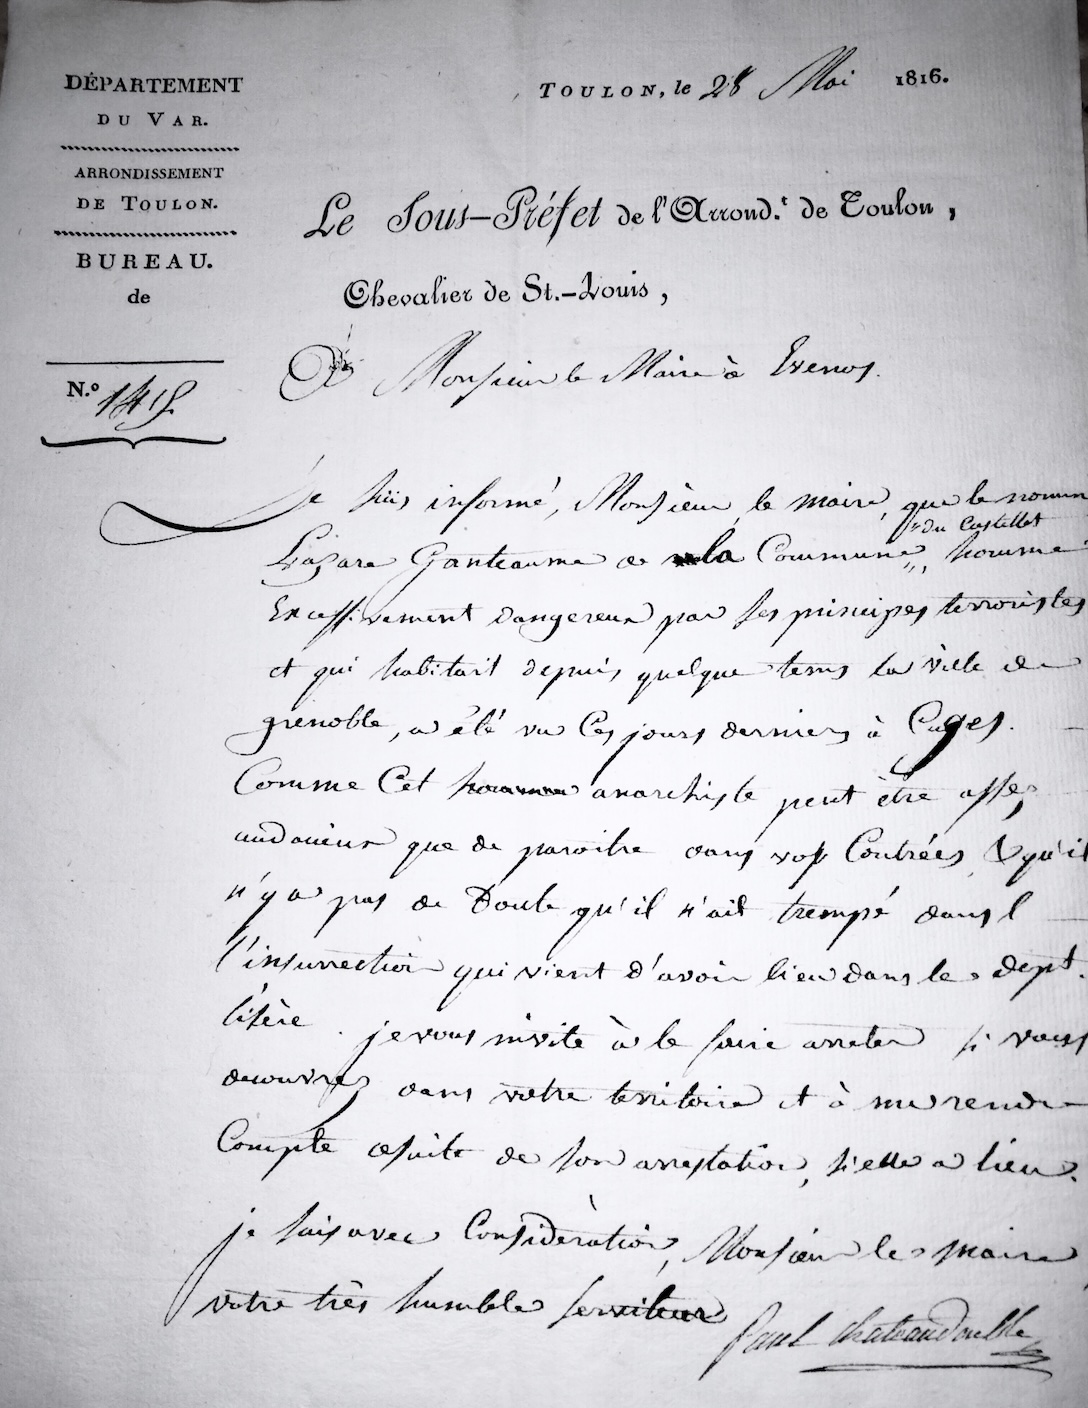 DÉPARTEMENT
DU VAR.
ARRONDISSEMENT
DE TOULON.
BUREAU.
de
N.º 1415
TOULON, le 28 Mai 1816.
Le Sous-Préfet de l'Arrond.t de Toulon,
Chevalier de St.-Louis,
A Monsieur le Maire à Evenos.
Je suis informé, Monsieur le maire, que le nommé
du Castellet
Lazare Ganteaume de la Commune,, homme
Excessivement dangereux par ses principes terroristes
et qui habitait depuis quelque tems la ville de
grenoble, a été vu Ces jours derniers à Cuges.
Comme Cet homme anarchiste peut être assez
audacieux que de paroitre dans vos Contrées, & qu'il
n'y a pas de Doute qu'il n'ait trempé dans l
l'insurrection qui vient d'avoir lieu dans le dept.
lisère. je vous invite à le faire arreter si vous
decouvrez dans votre territoire et à me rendre
Compte desuite de son arrestation, si elle a lieu.
je suis avec Considération, Monsieur le maire
votre très humble serviteur
Paul Chateaudouble